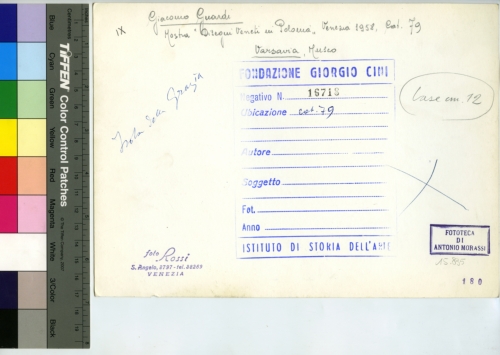 Giacomo Guardi
IX
Mostra "Disegni Veneti in Polonia", Venezia 1958, Cat. 79
Varsavia, Museo
FONDAZIONE GIORGIO CINI
Negativo N. 16718
Ubicazione cat. 79
Autore
Soggetto
Fot.
Anno
ISTITUTO DI STORIA DELL'ARTE
base cm. 12
Isola delle Grazie
foto Rossi
S. Angelo, 3797 - tel.
VENEZIA
FOTOTECA
DI
ANTONIO MORASSI
180
TIFFEN Color Control Patches
Blue
Cyan
Green
Yellow
Red
Magenta
White
3/Color
Black